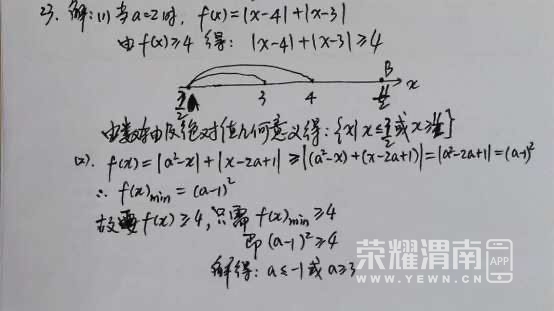 23. 解:(1)当a=2时, f(x)=|x-4|+|x-3|
由f(x)≥4 得: |x-4|+|x-3|≥4
A B x
3/2 3 4 11/2
由数轴及绝对值几何意义得:{x|x≤3/2或x≥11/2}
(2). f(x)=|a²-x|+|x-2a+1|≥|(a²-x)+(x-2a+1)|=|a²-2a+1|=(a-1)²
∴ f(x)min=(a-1)²
故要f(x)≥4,只需f(x)min≥4
即(a-1)²≥4
解得:a≤-1或a≥3
荣耀渭南 APP
WWW.YEWN.CN